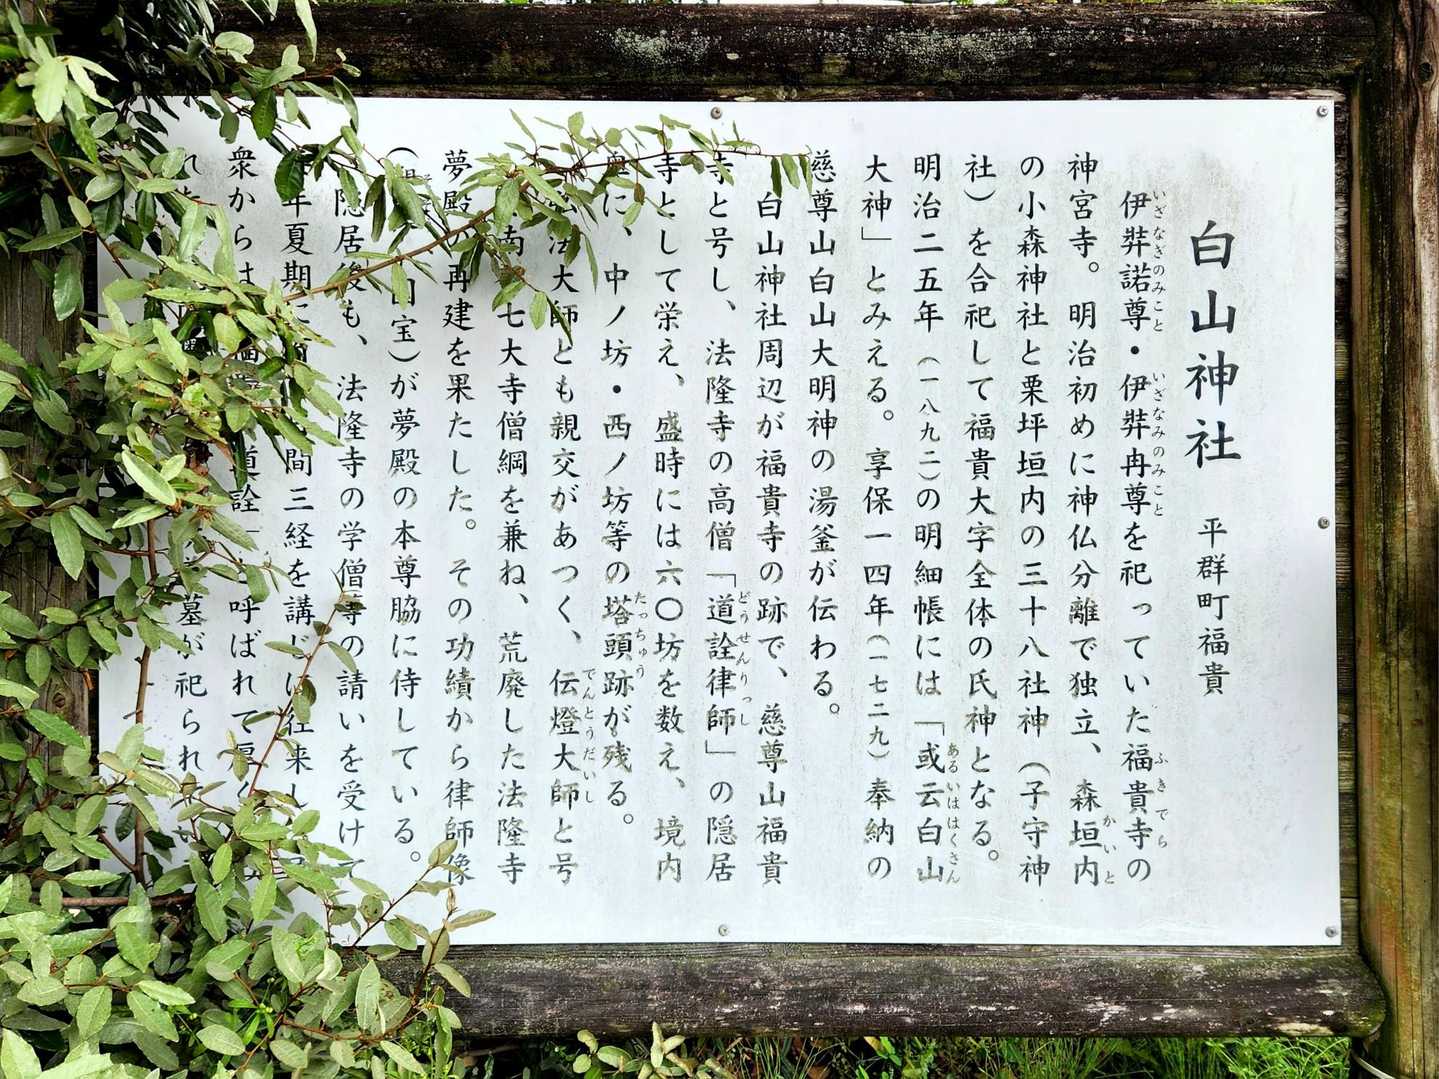 白山神社 平群町福貴
伊弉諾尊・伊弉冉尊を祀っていた福貴寺の
いざなぎのみこと いざなみのみこと ふきでら
神宮寺。明治初めに神仏分離で独立、森垣内
かいと
の小森神社と栗坪垣内の三十八社神（子守神
社）を合祀して福貴大字全体の氏神となる。
明治二五年（一八九二）の明細帳には「或云白山
あるいははくさん
大神」とみえる。享保一四年（一七二九）奉納の
慈尊山白山大明神の湯釜が伝わる。
白山神社周辺が福貴寺の跡で、慈尊山福貴
寺と号し、法隆寺の高僧「道詮律師」の隠居
どうせんりっし
寺として栄え、盛時には六〇坊を数え、境内
に、中ノ坊・西ノ坊等の塔頭跡が残る。
たっちゅう
法大師とも親交があつく、伝燈大師と号
でんとうだいし
南七大寺僧綱を兼ね、荒廃した法隆寺
夢殿の再建を果たした。その功績から律師像
国宝）が夢殿の本尊脇に侍している。
隠居後も、法隆寺の学僧等の請いを受けて
年夏期に 間三経を講じに往来し
衆からは 道詮 と呼ばれて厚く
墓が祀られ